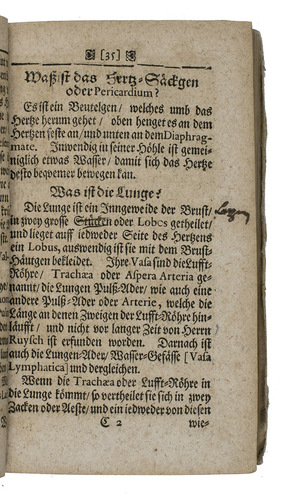 [35]
Waß ist das Hertz-Säckgen
oder Pericardium?
Es ist ein Beutelgen/ welches umb das
Hertze herum gehet/ oben henget es an dem
Hertzen feste an/ und unten an dem Diaphrag-
mate. Inwendig in seiner Höhle ist gemei-
niglich etwas Wasser/ damit sich das Hertze
desto beqvemer bewegen kan.
Was ist die Lunge?
Die Lunge ist ein Inngeweide der Brust/
in zwey grosse Stücken oder Lobos getheilet/
und lieget auff iedweder Seite des Hertzens
ein Lobus, auswendig ist sie mit dem Brust-
Häutgen bekleidet. Ihre Vasa sind die Lufft-
Röhre/ Trachæa oder Aspera Arteria ge-
nannt/ die Lungen Pulß-Ader/ wie auch eine
andere Pulß-Ader oder Arterie, welche die
Länge an denen Zweigen der Lufft-Röhre hin-
läufft/ und nicht vor langer Zeit von Herrn
Ruysch ist erfunden worden. Darnach ist
auch die Lungen-Ader/ Wasser-Gefässe [Vasa
Lymphatica] und dergleichen.
Wenn die Trachæa oder Lufft-Röhre in
die Lunge kömmt/ so vertheilet sie sich in zwey
Zacken oder Aeste/ und ein iedweder von diesen
C 2 wie-